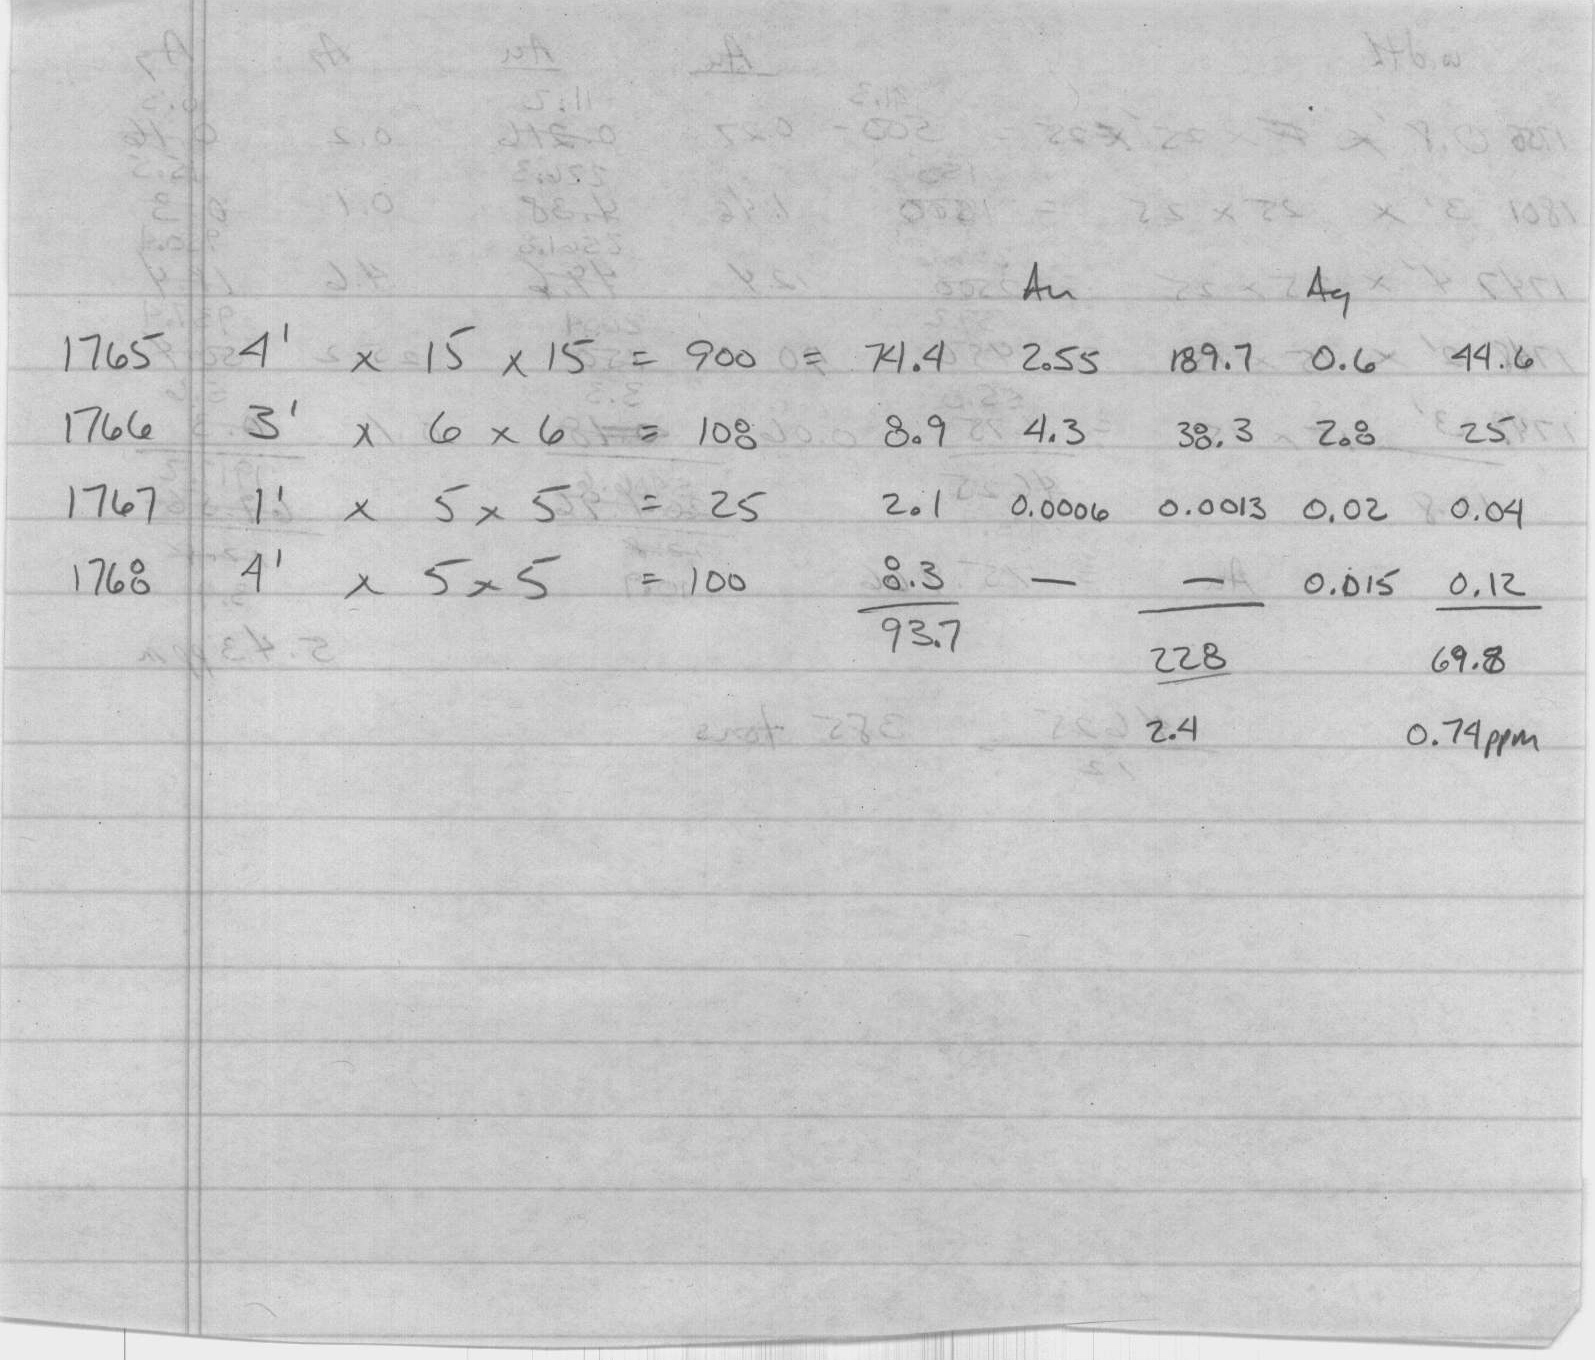 Au Ag
1765 4' x 15 x 15 = 900 = 74.4 2.55 189.7 0.6 44.6
1766 3' x 6 x 6 = 108 8.9 4.3 38.3 2.8 25
1767 1' x 5 x 5 = 25 2.1 0.0006 0.0013 0.02 0.04
1768 4' x 5 x 5 = 100 8.3 — — 0.015 0.12
93.7 228 69.8
2.4 0.74ppm